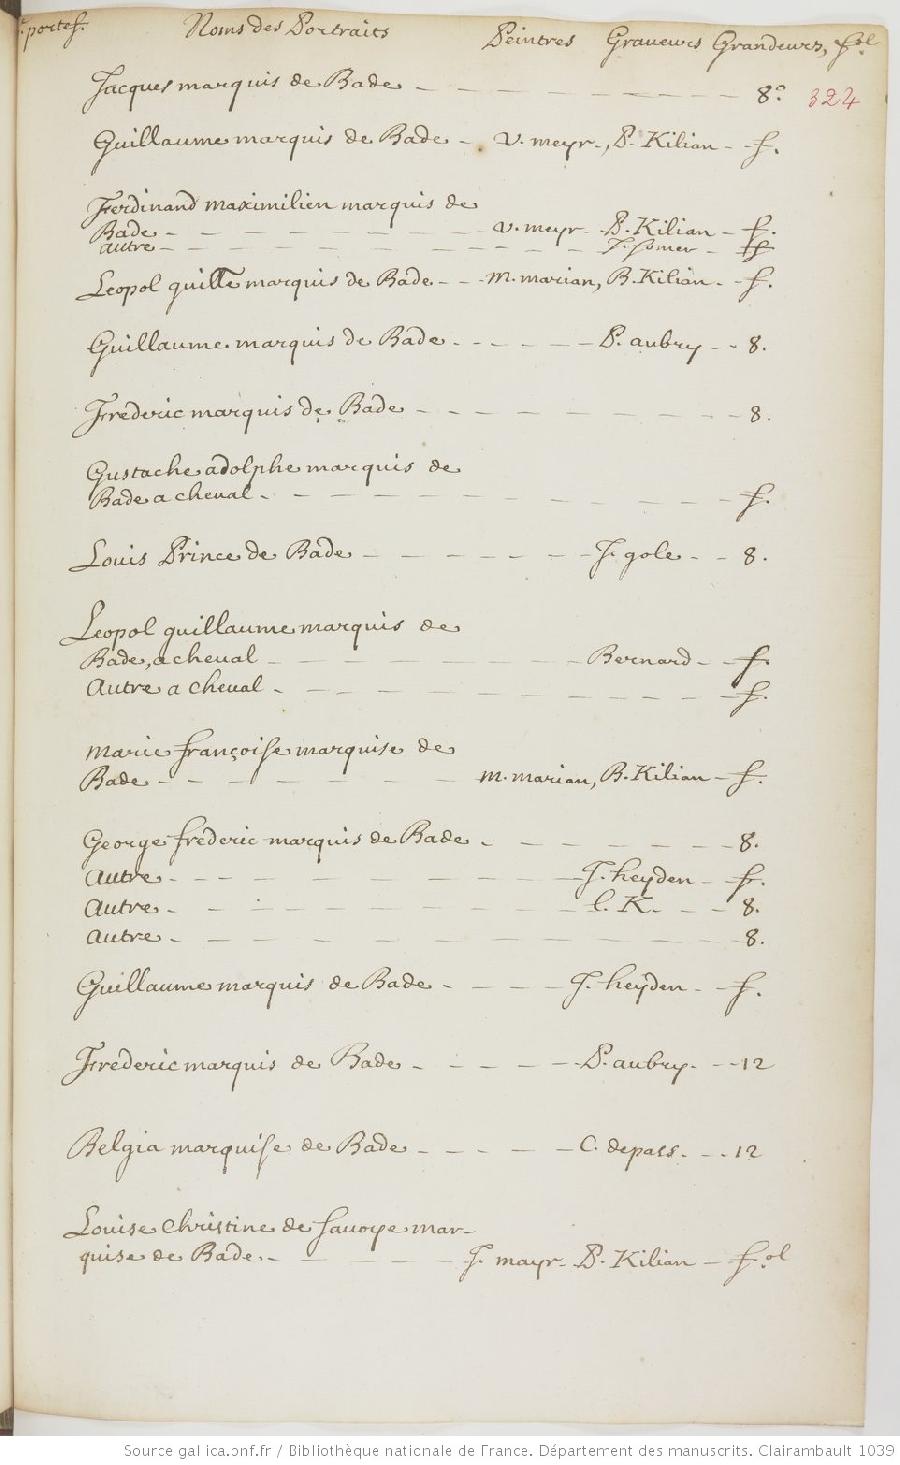 portef. Noms des Portraits Peintres Graveurs Grandeurs, fol.
Jacques marquis de Bade 8.º 324
Guillaume marquis de Bade v. meyr, P. Kilian f.
Ferdinand maximilien marquis de
Bade v. meyr P. Kilian f.
autre J. somer ff
Leopol guille marquis de Bade m. marian, B. Kilian f.
Guillaume marquis de Bade P. aubry 8.
Frederic marquis de Bade 8.
Gustache adolphe marquis de
Bade a cheval f.
Louis Prince de Bade J. gole 8.
Leopol guillaume marquis de
Bade, a cheval Bernard f.
Autre a cheval f.
Marie françoise marquise de
Bade m. marian, B. Kilian f.
George frederic marquis de Bade 8.
Autre J. heyden f.
Autre l. K. 8.
autre 8.
Guillaume marquis de Bade J. heyden f.
Frederic marquis de Bade P. aubry 12
Belgia marquise de Bade C. de pass. 12
Louise Christine de savoye mar-
quise de Bade J. mayr P. Kilian fol
Source gallica.bnf.fr / Bibliothèque nationale de France. Département des manuscrits. Clairambault 1039